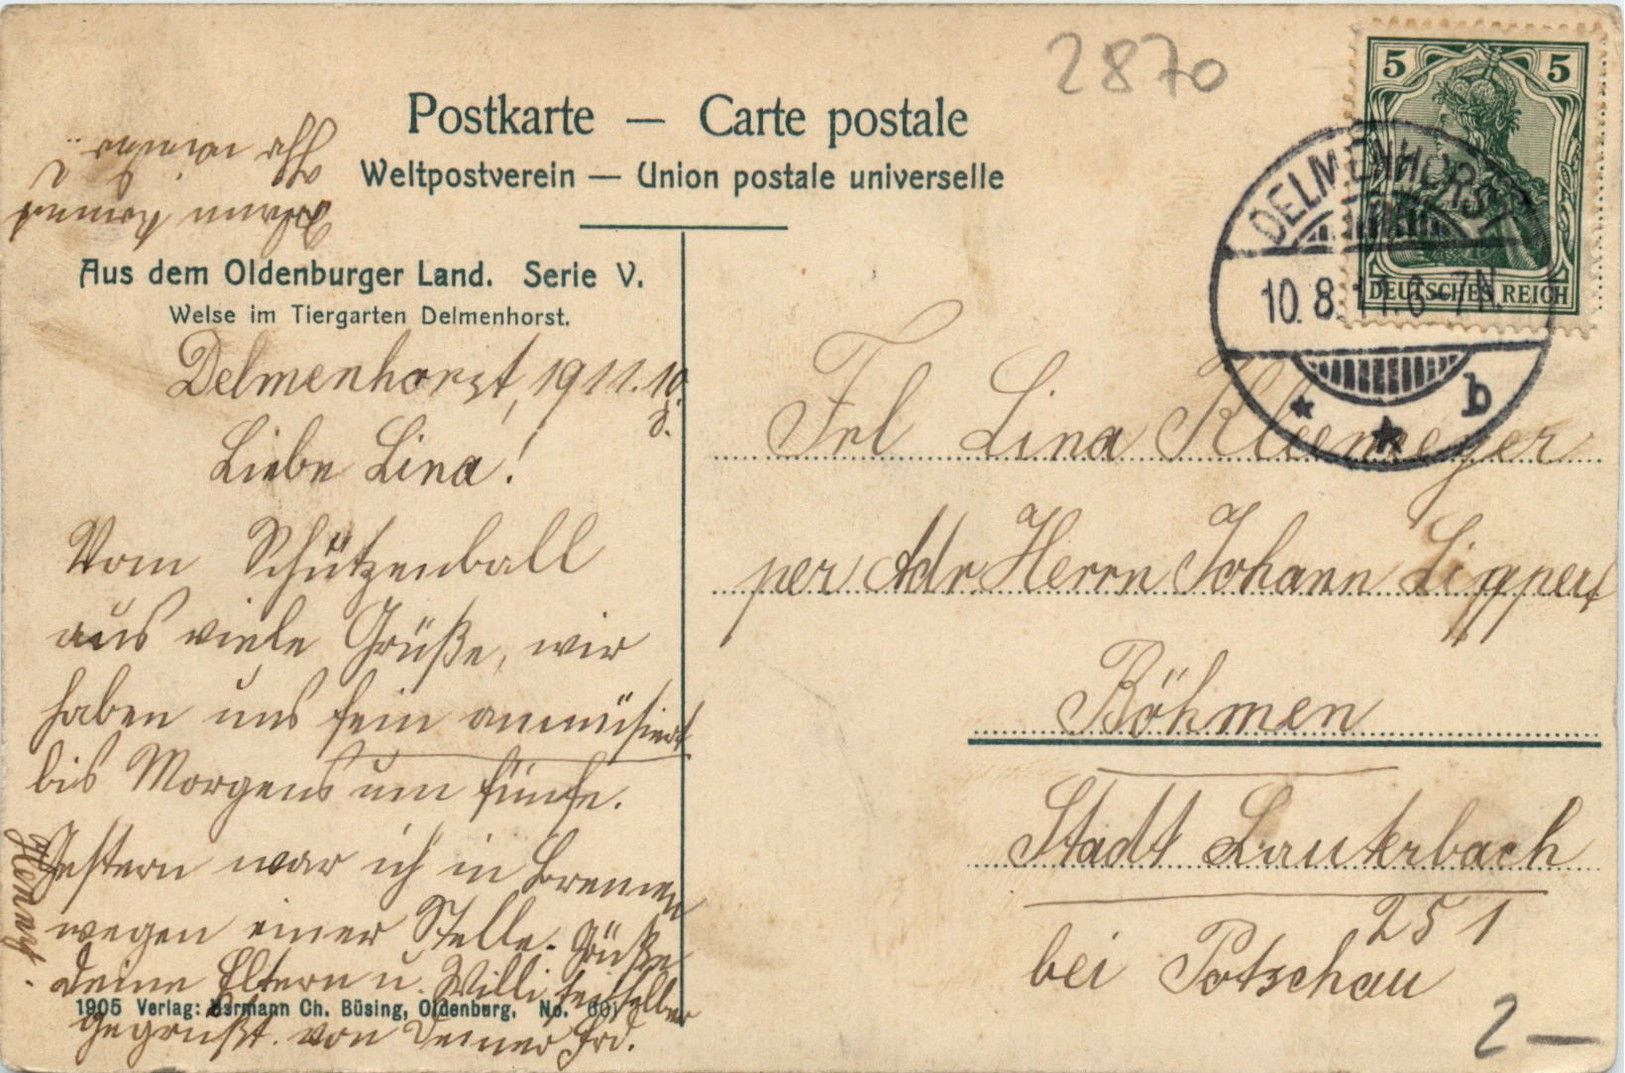 2870
Postkarte — Carte postale
Weltpostverein — Union postale universelle
5 5
DEUTSCHES REICH
DELMENHORST
10.8.11.6-7N.
* * b
Aus dem Oldenburger Land. Serie V.
Welse im Tiergarten Delmenhorst.
Delmenhorst, 1911.10.
8.
Liebe Lina!
Vom Schützenball
aus viele Grüße, wir
haben uns fein ammüsiert
bis Morgens um fünfe.
Gestern war ich in Bremen
wegen einer Stelle. Grüße
Deine Eltern u. Willi sei selber
gegrüßt. von Deiner Frd.
1905 Verlag: Hermann Ch. Büsing, Oldenburg, No.
Frl Lina Kleemeyer
per Adr Herrn Johann Lippert
Böhmen
Stadt Lauterbach
251
bei Potschau
2 —